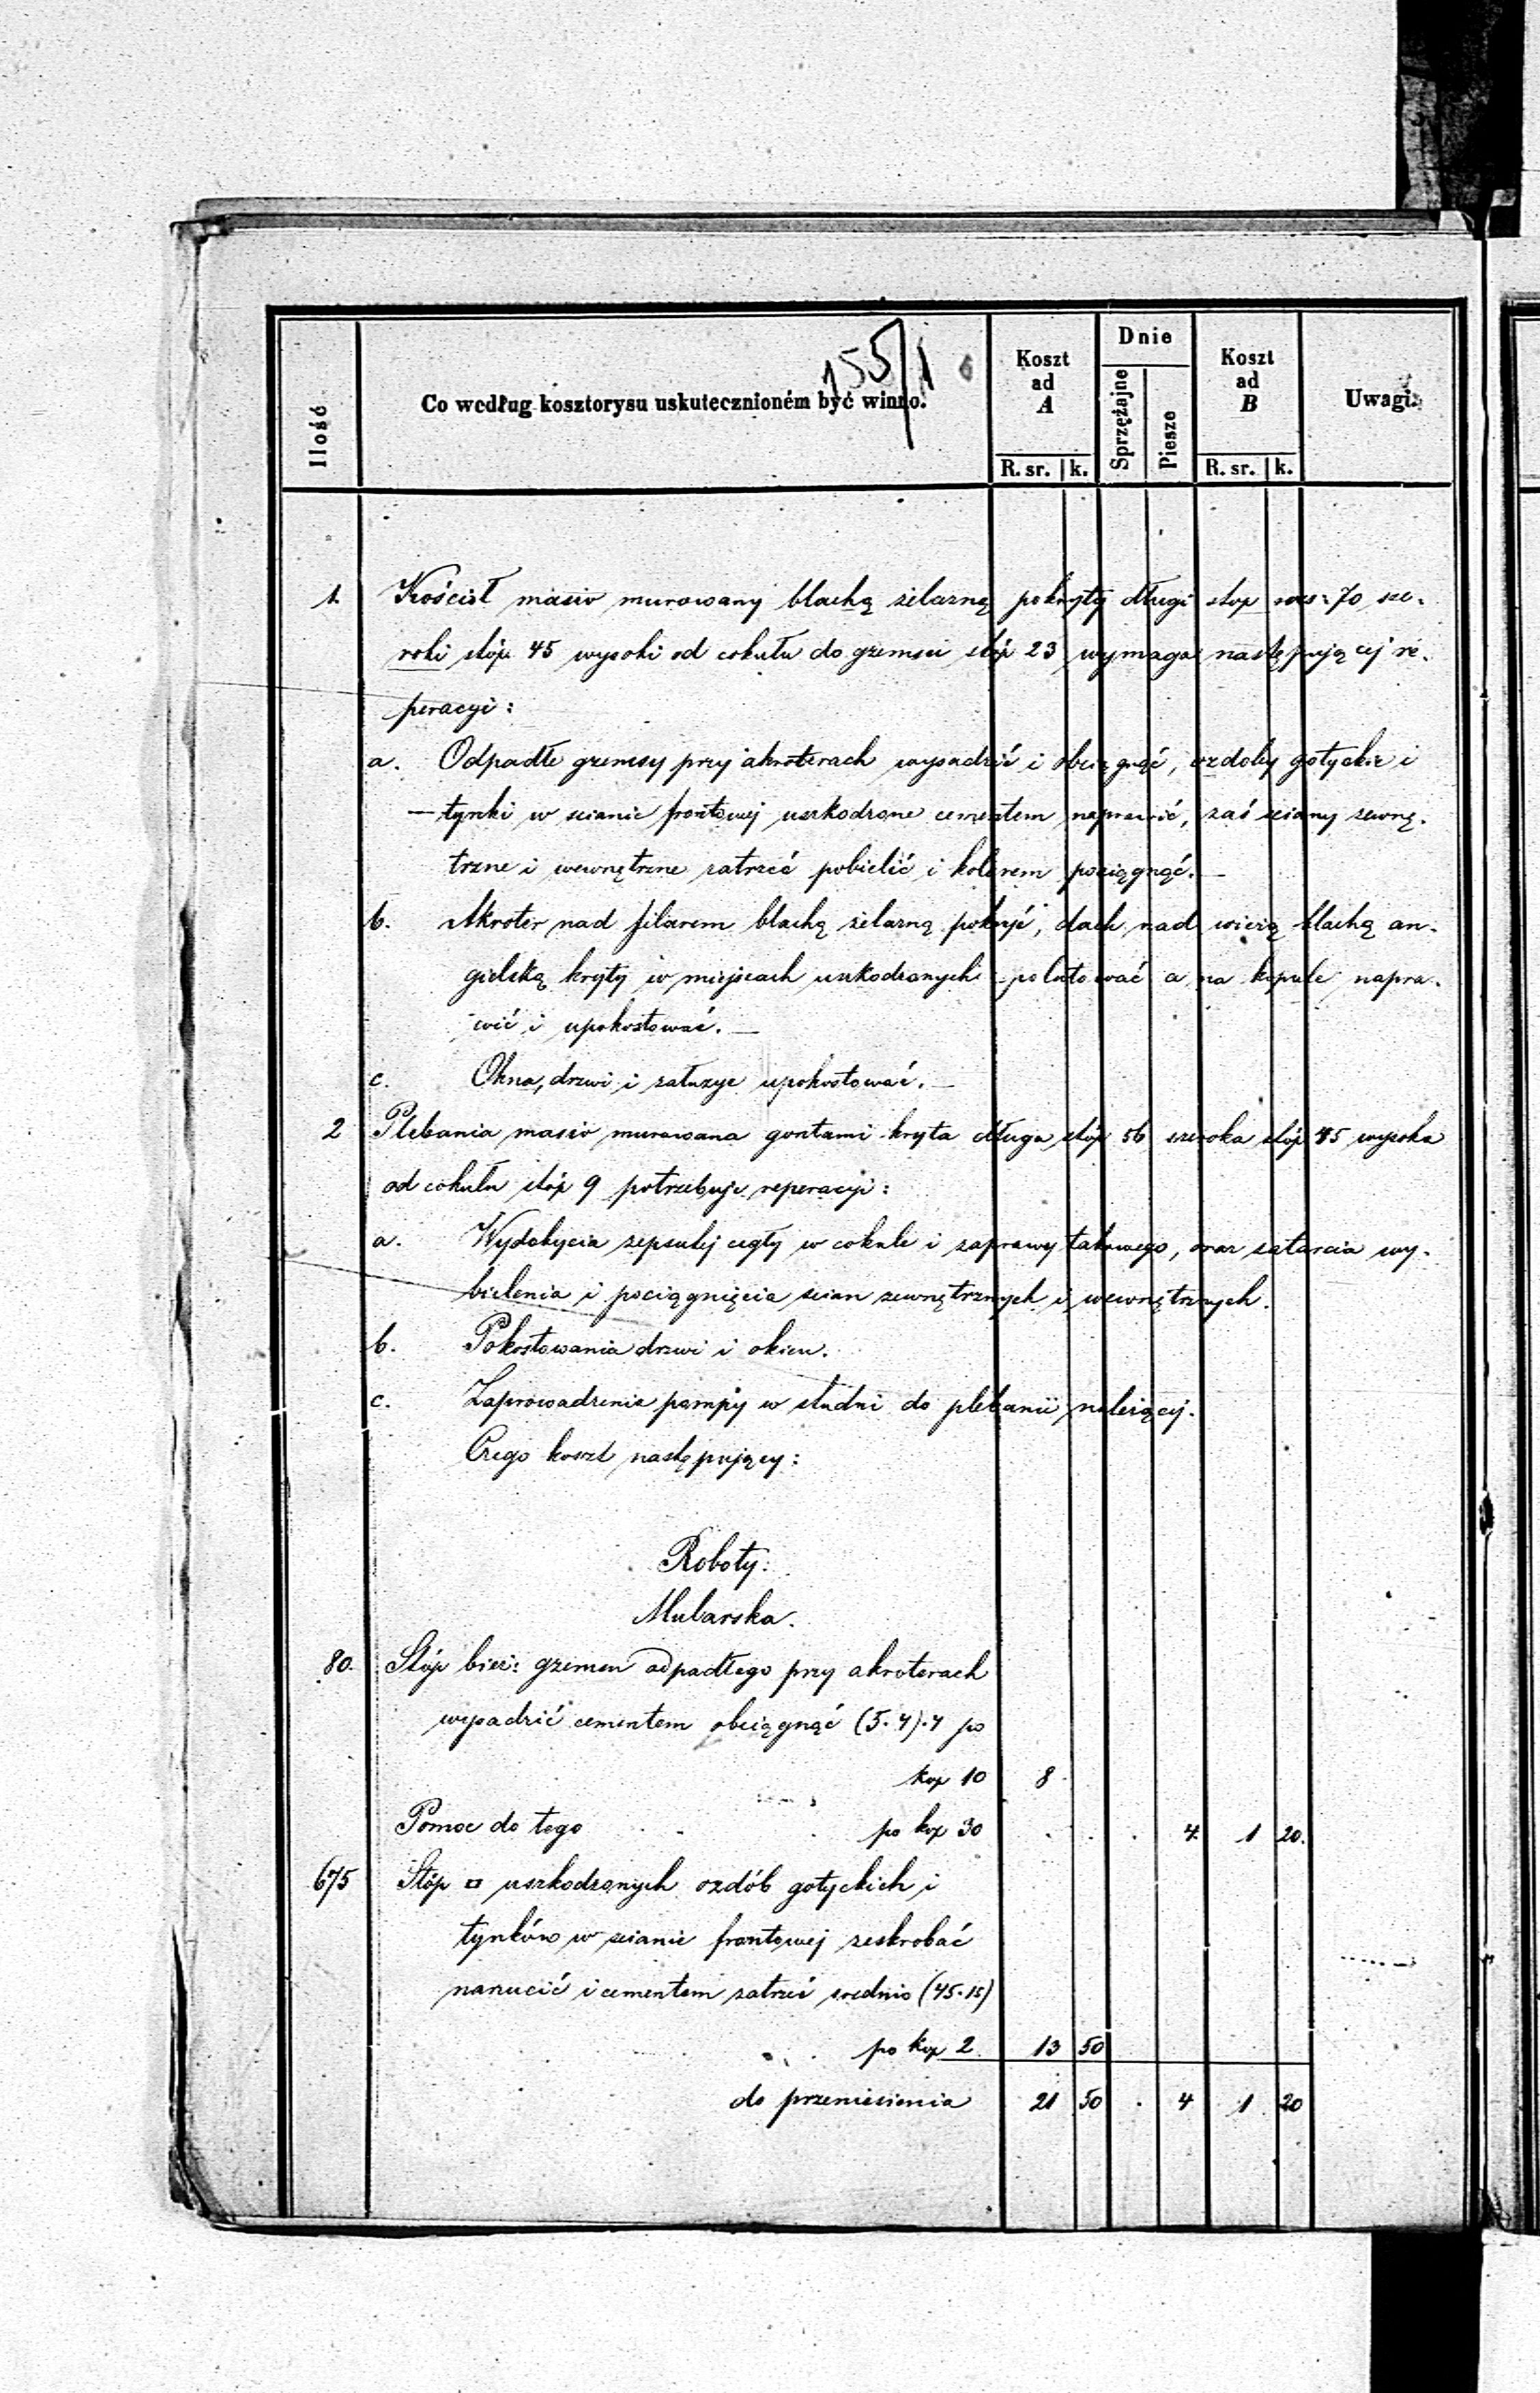 155/1
Ilość
Co według kosztorysu uskutecznioném być winno.
Koszt ad A
R. sr. k.
Dnie
Sprzężajne
Piesze
Koszt ad B
R. sr. k.
Uwagi.
1. Kościół masiv murowany blachą żelazną pokryty długi stóp 70 sze-
roki stóp 45 wysoki od cokułu do gzemsu stóp 23 wymaga następującej re-
peracyi:
a. Odpadłe gzemsy przy akroterach wysadzić i obciągnąć, ozdoby gotyckie i
tynki w scianie frontowej uszkodzone cementem naprawić, zaś sciany zewnę-
trzne i wewnętrzne zatrzeć pobielić i kolorem pociągnąć. —
b. Akroter nad filarem blachą żelazną pokryć, dach nad wieżą blachą an-
gielską kryty w miejscach uszkodzonych polutować a na kopule napra-
wić i upokostować. —
c. Okna, drzwi i załuzye upokostować. —
2 Plebania masiv murowana gontami kryta długa stóp 56 szeroka stóp 45 wysoka
od cokułu stóp 9 potrzebuje reperacyi:
a. Wydobycia zepsutej cegły w cokule i zaprawy takowego, oraz zatarcia wy-
bielenia i pociągnięcia scian zewnętrznych i wewnętrznych.
b. Pokostowania drzwi i okien.
c. Zaprowadzenia pompy w studni do plebanii należącej.
Czego koszt następujący:
Roboty:
Mularska.
80. Stóp bież: gzemsu odpadłego przy akroterach
wysadzić cementem obciągnąć (5.4).4 po
kop 10 8
Pomoc do tego po kop 30 . . . 4. 1 20.
675 Stóp □ uszkodzonych ozdób gotyckich i
tynków w scianie frontowej zeskrobać
narzucić i cementem zatrzeć srednio (45.15)
po kop 2 13 50
do przeniesienia 21 50 . 4 1 20